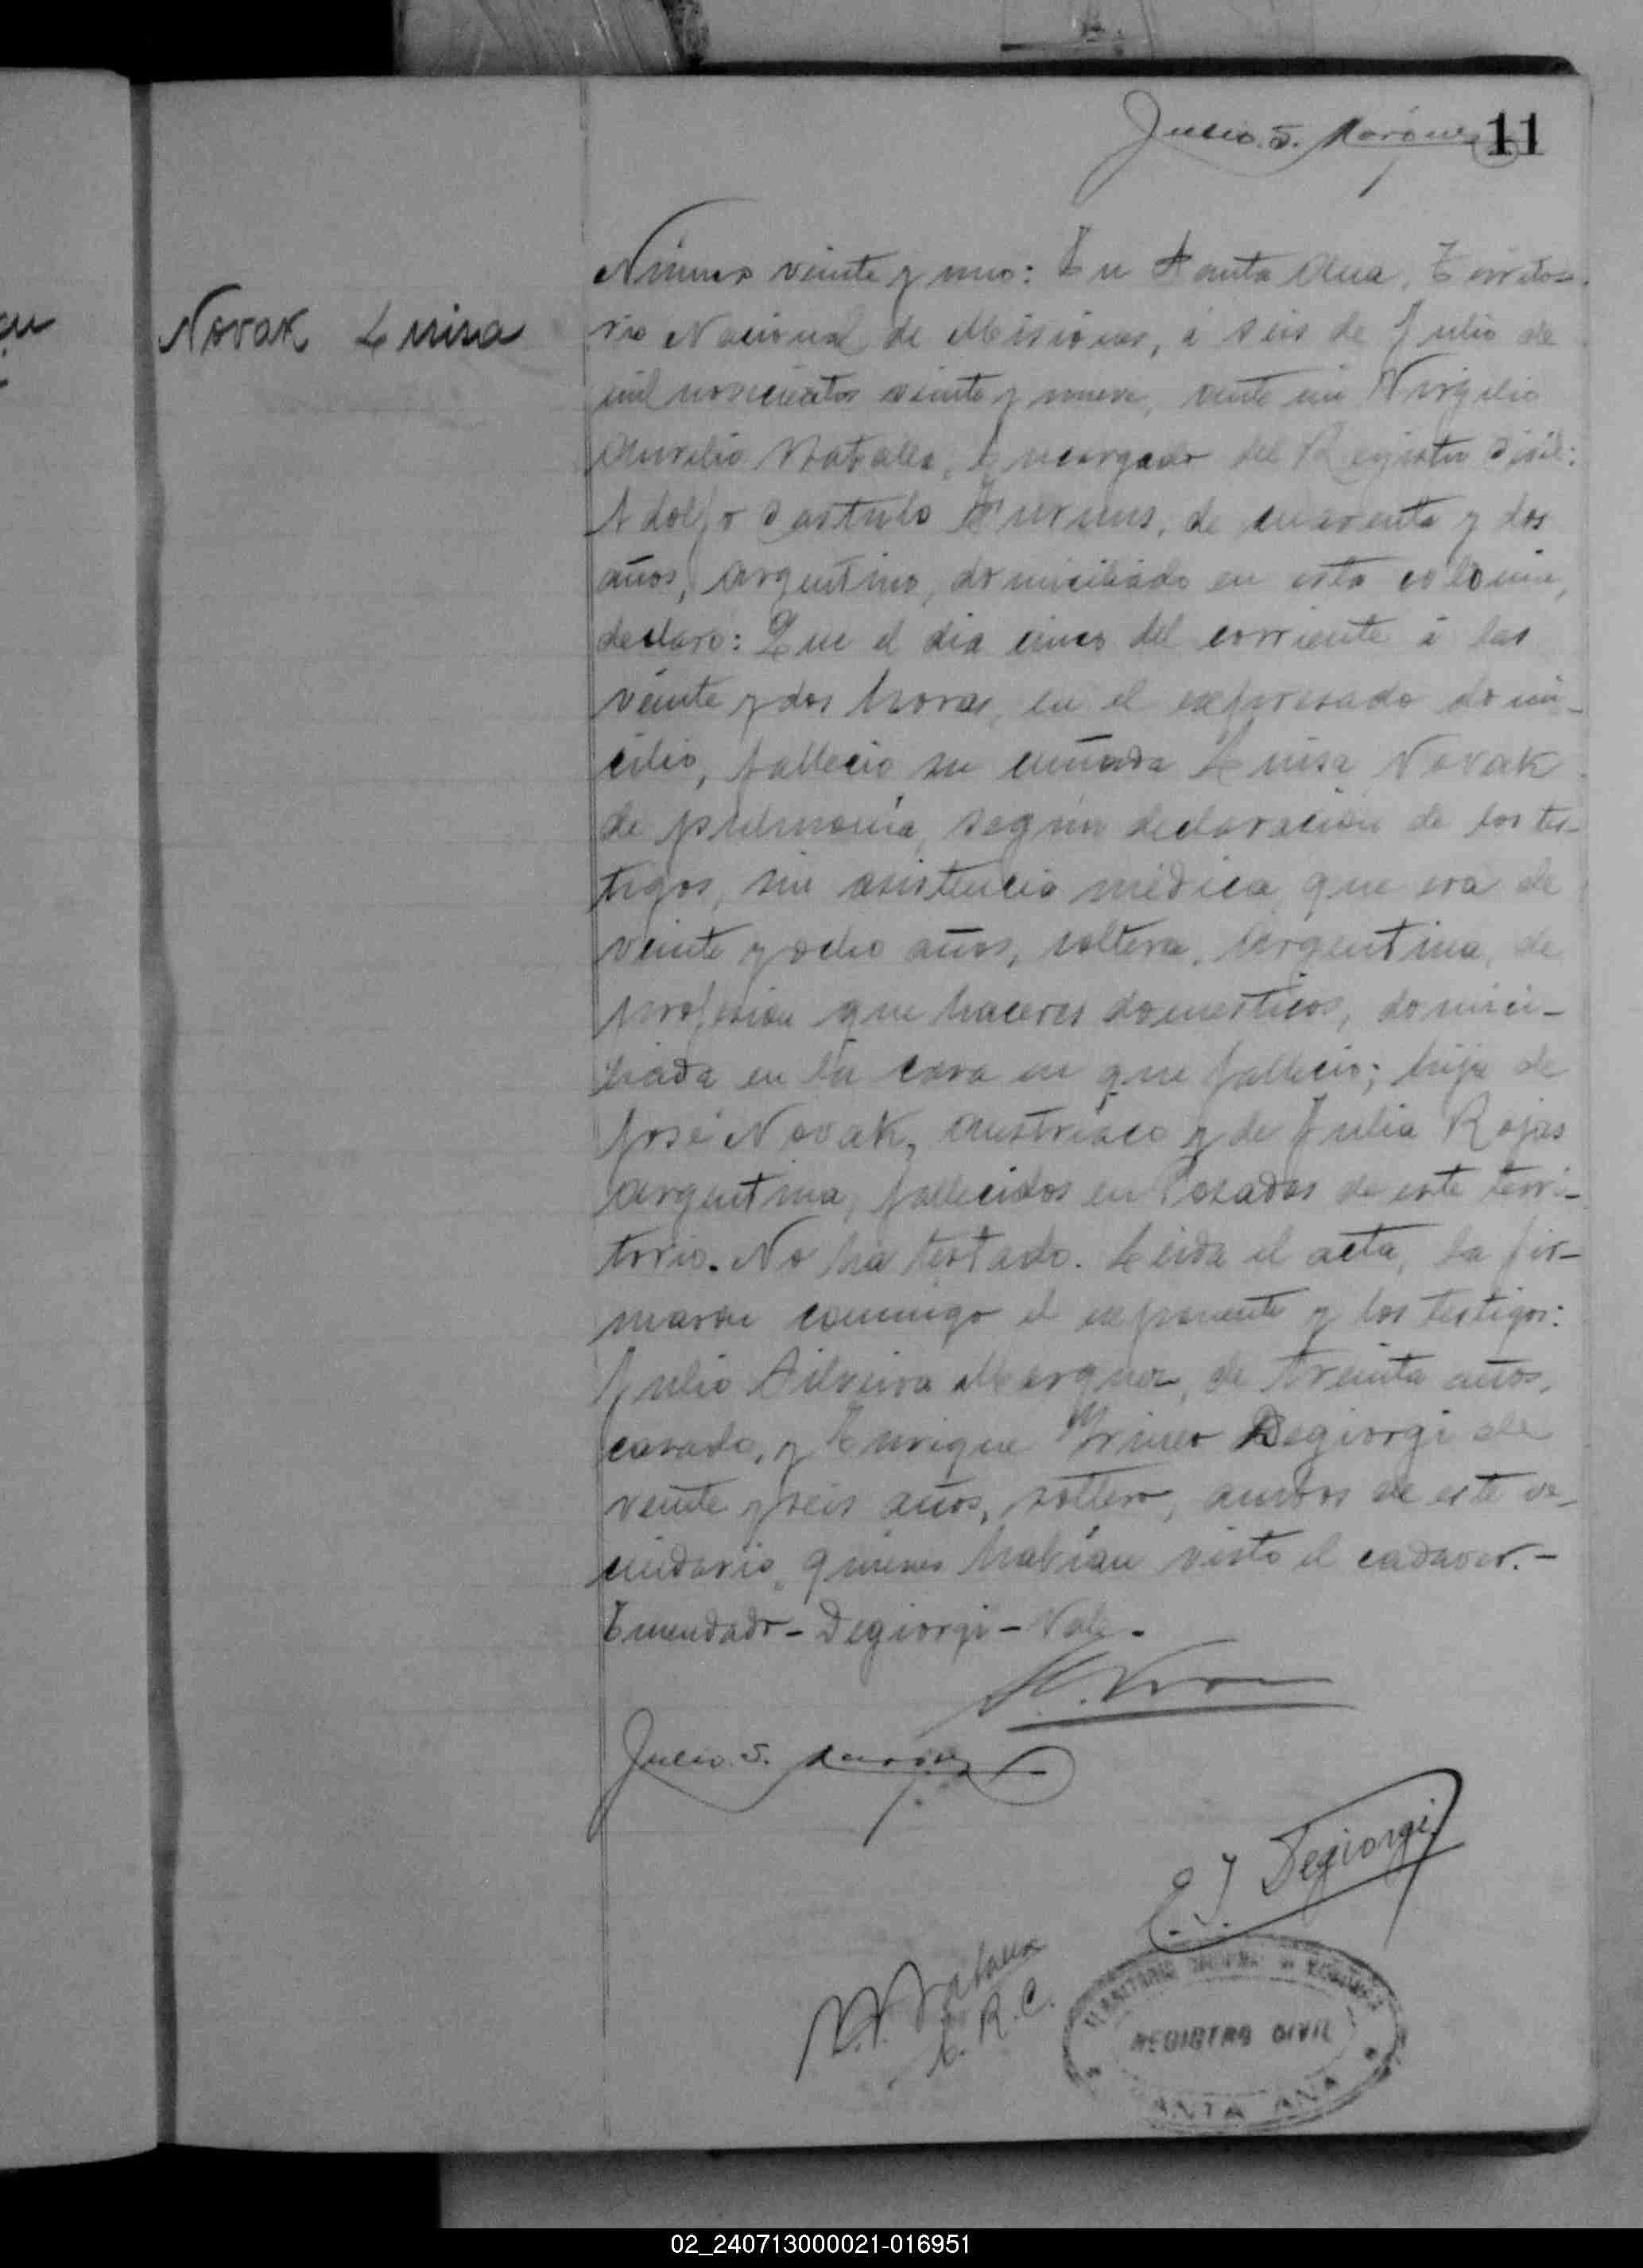 Julio S. Marquez 11
Novak Luisa
Número veinte y uno: En Santa Ana, Territo-
rio Nacional de Misiones, á seis de Julio de
mil novecientos veinte y nueve, ante mi Virgilio
Aurelio, Encargado del Registro Civil:
Adolfo Castulo, de cuarenta y dos
años, argentino, domiciliado en esta colonia,
declaró: Que el dia cinco del corriente á las
veinte y dos horas, en el expresado domi-
cilio, falleció su cuñada Luisa Novak
de pulmonía, según declaración de los tes-
tigos, sin asistencia médica, que era de
veinte y ocho años, soltera, argentina, de
profesión que haceres domesticos, domici-
liada en la casa en que falleció; hija de
José Novak, austríaco y de Julia Rojas
argentina, fallecidos en Posadas de este terri-
torio. No ha testado. Leida el acta, la fir-
maron conmigo el exponente y los testigos:
Julio Silveira Marquez, de treinta años,
casado, y Enrique Degiorgi de
veinte y seis años, soltero, ambos de este ve-
cindario, quienes habían visto el cadaver.-
Enmendado - Degiorgi - Vale.
Julio S. Marquez
E. J. Degiorgi
E. R. C.
REGISTRO CIVIL
SANTA ANA
02_240713000021-016951